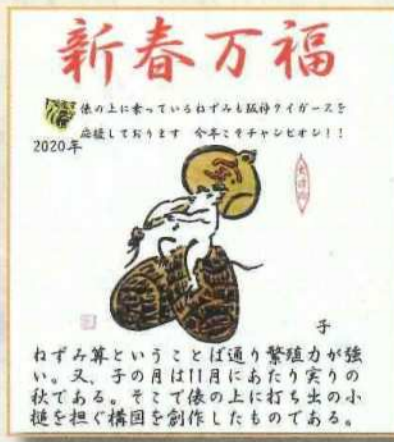 新春万福
俵の上に乗っているねずみも阪神タイガースを
応援しております 今年こそチャンピオン！！
2020年
子
ねずみ算ということば通り繁殖力が強
い。又、子の月は11月にあたり実りの
秋である。そこで俵の上に打ち出の小
槌を担ぐ構図を創作したものである。